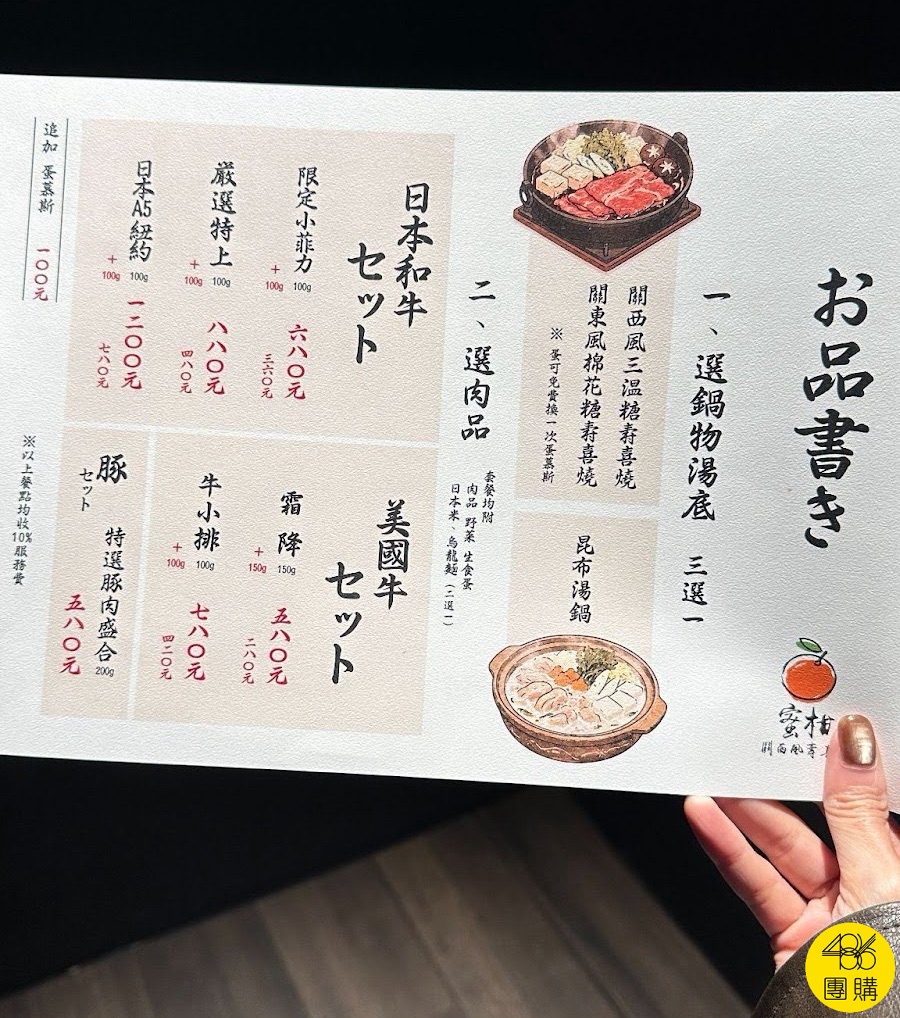 お品書き
蜜柑
一、選鍋物湯底 三選一
關西風三温糖壽喜燒
關東風棉花糖壽喜燒
※ 蛋可免費換一次蛋慕斯
昆布湯鍋
二、選肉品
套餐均附
肉品 野菜 生食蛋
日本米、烏龍麵(二選一)
日本和牛
セット
限定小菲力 100g 六八〇元
+100g 三六〇元
嚴選特上 100g 八八〇元
+100g 四八〇元
日本A5紐約 100g 一二〇〇元
+100g 七八〇元
美國牛
セット
霜降 150g 五八〇元
+150g 二八〇元
牛小排 100g 七八〇元
+100g 四二〇元
豚
セット
特選豚肉盛合 200g
五八〇元
追加 蛋慕斯 一〇〇元
※以上餐點均收10%服務費
486
團購